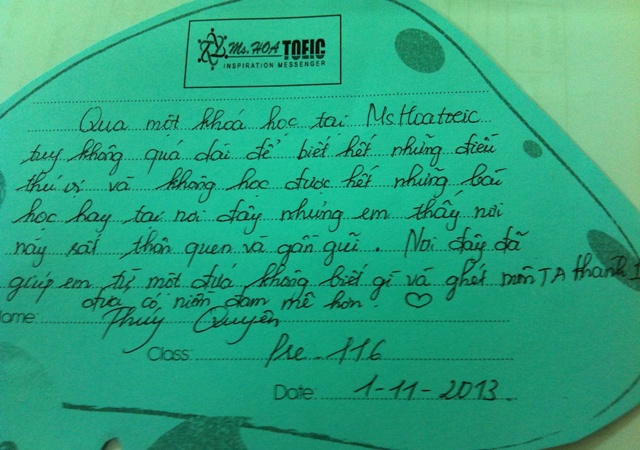 Ms. HOA TOEIC
INSPIRATION MESSENGER
Qua một khoá học tại Ms Hoatoeic
tuy không quá dài để biết hết những điều
thú vị và không học được hết những bài
học hay tại nơi đây nhưng em thấy nơi
này rất thân quen và gần gũi. Nơi đây đã
giúp em từ một đứa không biết gì và ghét môn TA thành 1
đứa có niềm đam mê hơn! ♡
Name: Thuý Quyên
Class: Pre - 116
Date: 1-11-2013.